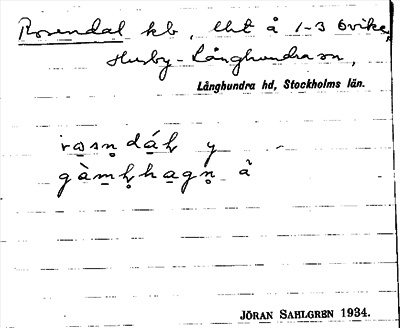 Rosendal kb, lht å 1-3 Övike,
Husby-Långhundra sn,
Långhundra hd, Stockholms län.
y
å
JÖRAN SAHLGREN 1934.